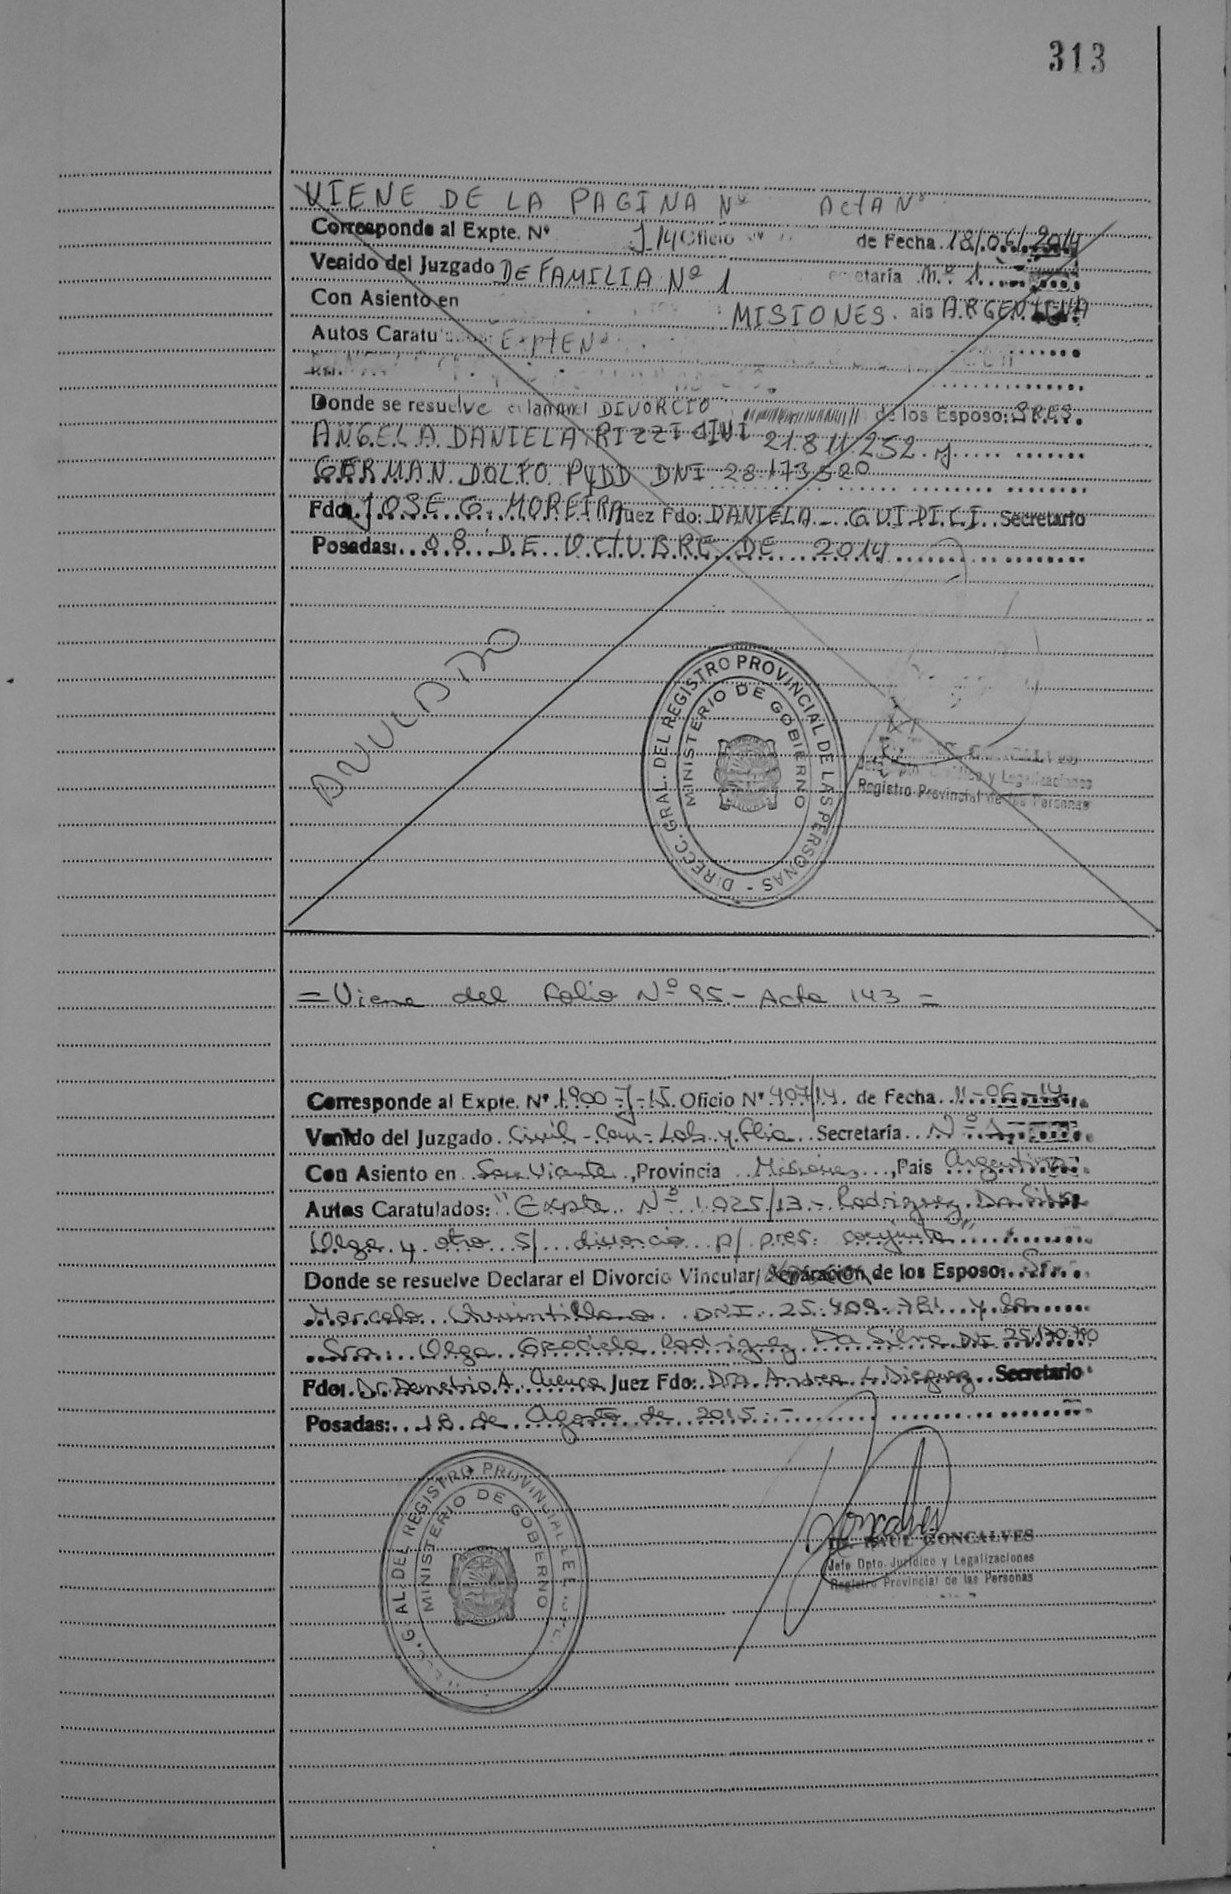 313
VIENE DE LA PAGINA Nº ActA Nº
Corresponde al Expte. Nº J 14 Oficio de Fecha 18/06/2014
Venido del Juzgado DE FAMILIA Nº 1 Nº 1
Con Asiento en MISIONES ais ARGENTINA
Autos Caratu ExptE Nº
Donde se resuelve DIVORCIO de los Esposo: SRES.
ANGELA DANIELA RIZZI DNI 21.811.252 y
GERMAN DOLFO PYDD DNI 28.173.520
Fdo: JOSE G. MOREIRA Juez Fdo: DANIELA GUIDICI Secretario
Posadas: 08 DE OCTUBRE DE 2014
ANULADO
DIRECC. GRAL. DEL REGISTRO PROVINCIAL DE LAS PERSONAS -
MINISTERIO DE GOBIERNO
y Legalizaciones
Registro Provincial de las Personas
= Viene del folio Nº 95 - Acta 143 =
Corresponde al Expte. Nº 1900-J-15 Oficio Nº 407/14 de Fecha 11-06-14
Venido del Juzgado Civil - Com - Lab. y Flia. Secretaría Nº 1
Con Asiento en San Vicente, Provincia Misiones, Pais Argentina
Autos Caratulados: "Expte Nº 1025/13 - Rodriguez Da Silva
Olga y otro s/ divorcio p/ pres. conjunta"
Donde se resuelve Declarar el Divorcio Vincular/ Separación de los Esposo: Sr.
Marcelo Quintillano DNI 25.409.781 y la
Sra. Olga Graciela Rodriguez Da Silva DNI 25.170.790
Fdo: Dr. Demetrio A. Juez Fdo: Dra. Andrea L. Dieguez Secretario
Posadas: 18 de Agosto de 2015 -
AL. DEL REGISTRO PROVINCIAL
MINISTERIO DE GOBIERNO
RAUL GONCALVES
Jefe Dpto. Jurídico y Legalizaciones
Registro Provincial de las Personas